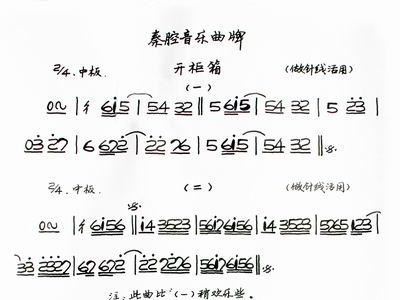 秦腔音乐曲牌
2/4. 中板. 开柜箱 (做针线活用)
(一)
0~ | 彳 6i5 | 54 32 || 5 6i5 | 54 32 | 5 23 |
03 27 | 6 672 | 22 76 | 5 6i5 | 54 32 ||
2/4. 中板. (二) (做针线活用)
0~ | 6i56 || i4 3523 | 5617 6i56 | i4 3523 | 5265 123 |
33 2327 | 67 672 | 22 7276 | 5617 6i56 ||
注: 此曲比(一)稍欢乐些。